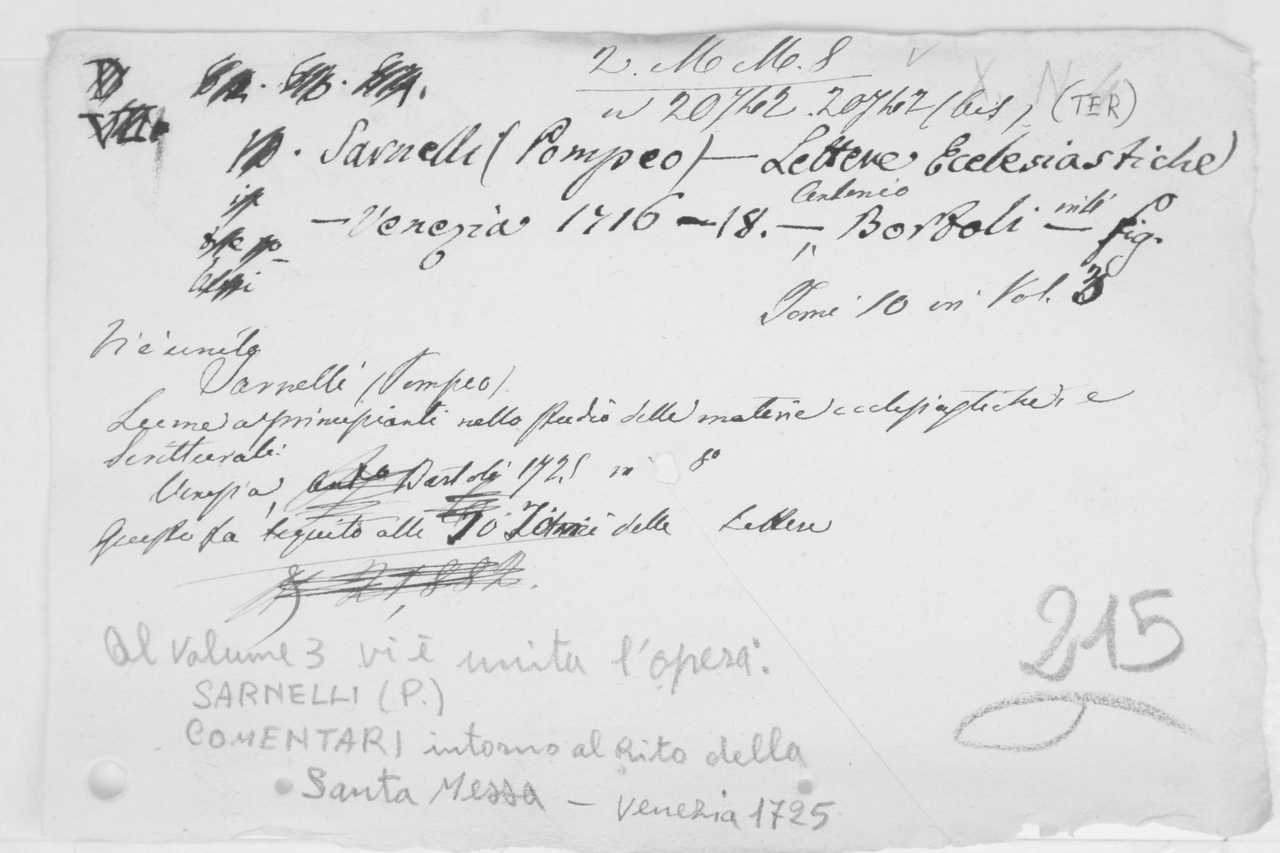 2. M M. 8
n 20742. 20742 (bis) (TER)
Sarnelli (Pompeo) — Lettere Ecclesiastiche
— Venezia 1716 – 18. — Antonio Bortoli — fig.
Tomi 10 in Vol. 3
Vi è unito
Sarnelli (Pompeo)
Lume a principianti nello studio delle materie ecclesiastiche, e
Scritturali.
Venezia, Bortoli 1725 in 8º
Questo fa seguito alli 10 Tomi delle Lettere
21,882.
Al volume 3 vi è unita l'opera:
SARNELLI (P.)
COMENTARI intorno al Rito della
Santa Messa – Venezia 1725
215